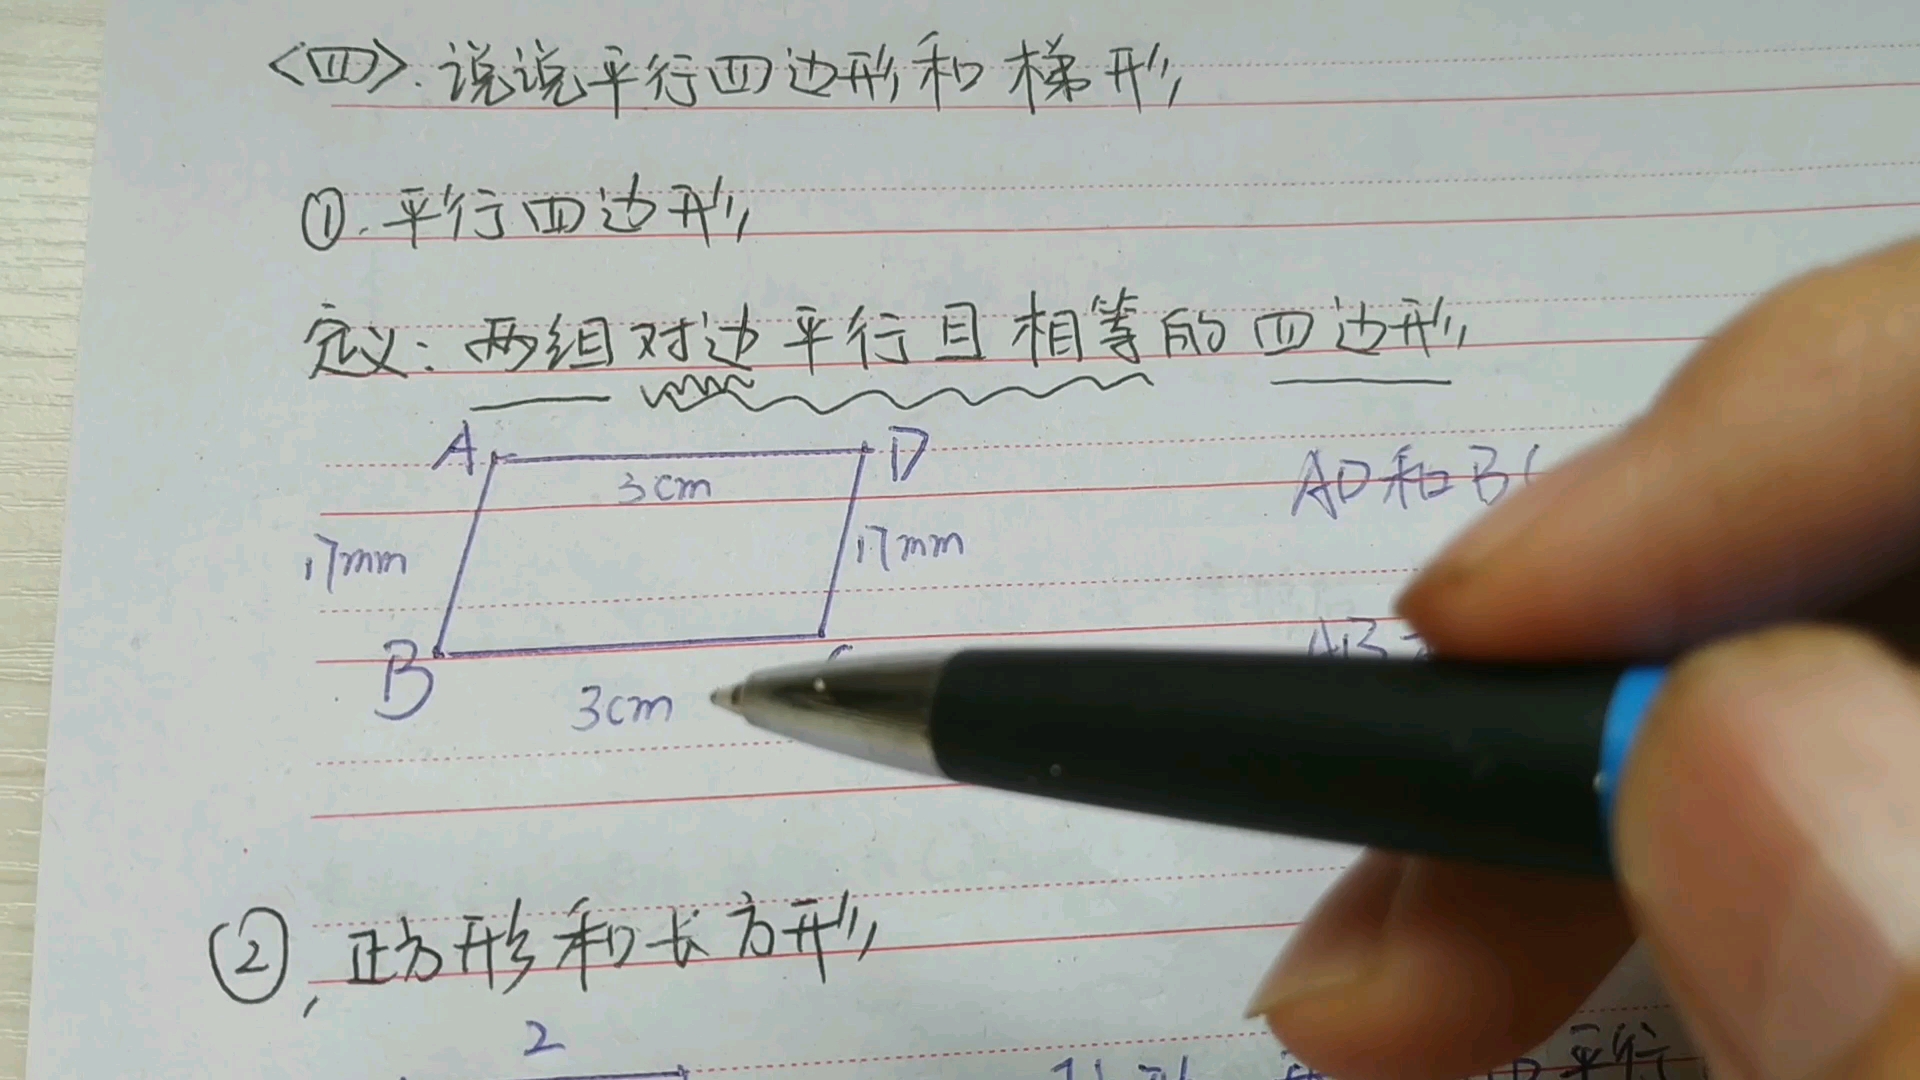 <四>.说说平行四边形和梯形
①.平行四边形
定义:两组对边平行且相等的四边形
A D
3cm
17mm 17mm
AD和B
AB
B
3cm
②,正方形和长方形
2
平行